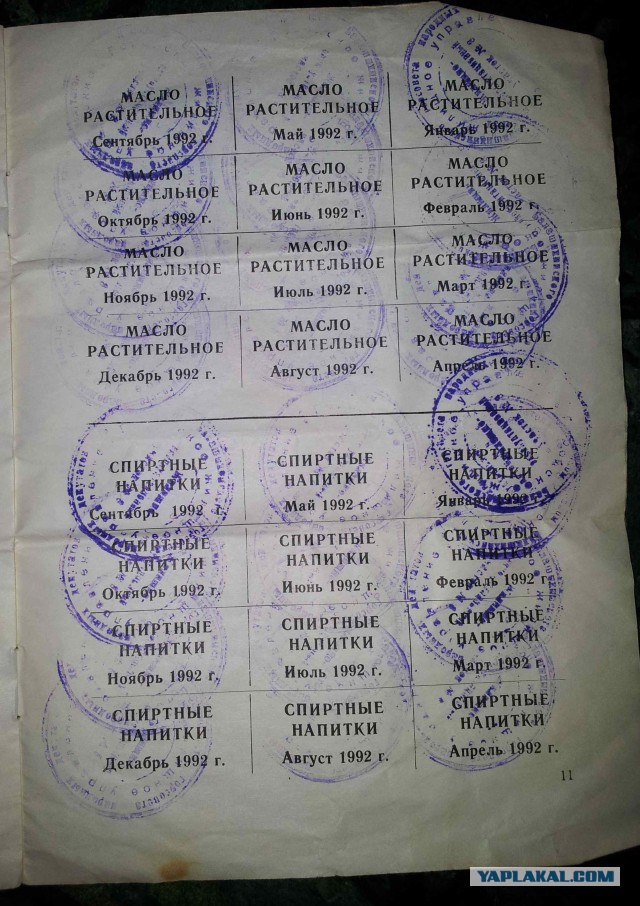 МАСЛО
РАСТИТЕЛЬНОЕ
Сентябрь 1992 г.
МАСЛО
РАСТИТЕЛЬНОЕ
Май 1992 г.
МАСЛО
РАСТИТЕЛЬНОЕ
Январь 1992 г.
МАСЛО
РАСТИТЕЛЬНОЕ
Октябрь 1992 г.
МАСЛО
РАСТИТЕЛЬНОЕ
Июнь 1992 г.
МАСЛО
РАСТИТЕЛЬНОЕ
Февраль 1992 г.
МАСЛО
РАСТИТЕЛЬНОЕ
Ноябрь 1992 г.
МАСЛО
РАСТИТЕЛЬНОЕ
Июль 1992 г.
МАСЛО
РАСТИТЕЛЬНОЕ
Март 1992 г.
МАСЛО
РАСТИТЕЛЬНОЕ
Декабрь 1992 г.
МАСЛО
РАСТИТЕЛЬНОЕ
Август 1992 г.
МАСЛО
РАСТИТЕЛЬНОЕ
Апрель 1992 г.
СПИРТНЫЕ
НАПИТКИ
Сентябрь 1992 г.
СПИРТНЫЕ
НАПИТКИ
Май 1992 г.
СПИРТНЫЕ
НАПИТКИ
Январь 1992 г.
СПИРТНЫЕ
НАПИТКИ
Октябрь 1992 г.
СПИРТНЫЕ
НАПИТКИ
Июнь 1992 г.
СПИРТНЫЕ
НАПИТКИ
Февраль 1992 г.
СПИРТНЫЕ
НАПИТКИ
Ноябрь 1992 г.
СПИРТНЫЕ
НАПИТКИ
Июль 1992 г.
СПИРТНЫЕ
НАПИТКИ
Март 1992 г.
СПИРТНЫЕ
НАПИТКИ
Декабрь 1992 г.
СПИРТНЫЕ
НАПИТКИ
Август 1992 г.
СПИРТНЫЕ
НАПИТКИ
Апрель 1992 г.
11
YAPLAKAL.COM